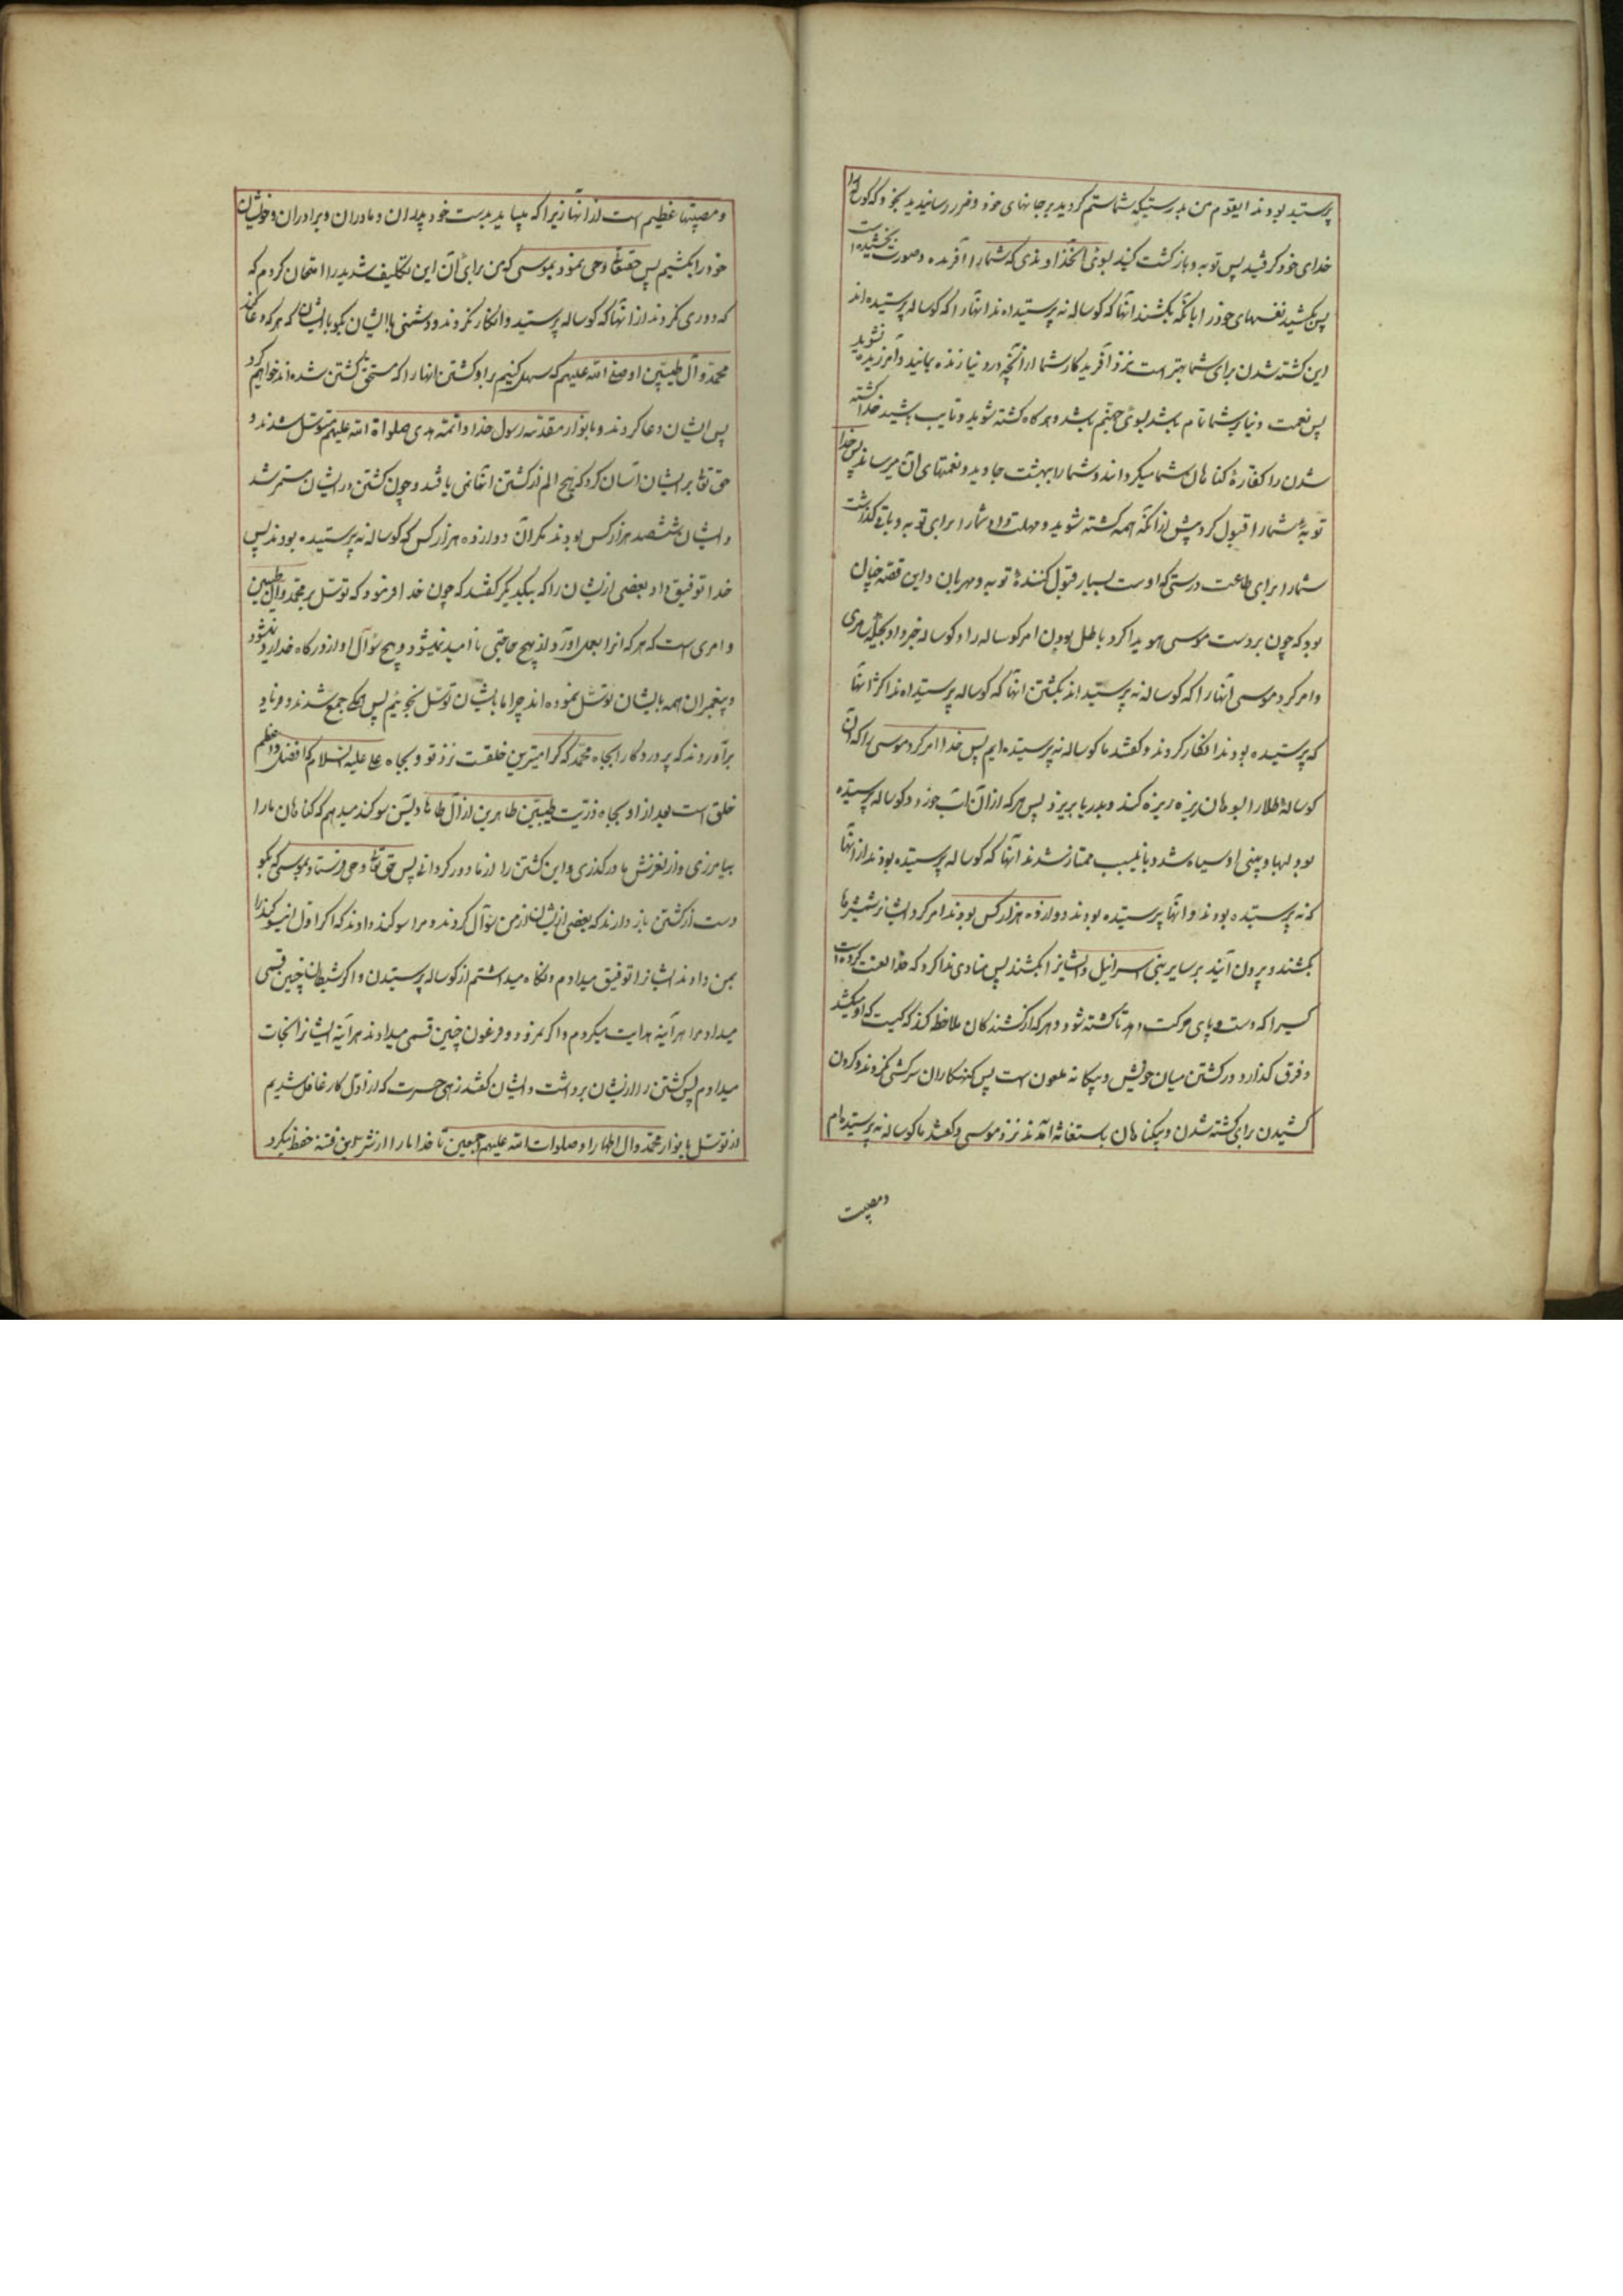 پرستید بودند ایقوم من بدرستیکه شما ستم کردید بر جانهای خود و ضرر رسانیدید بخود که کوساله را
خدای خود کرفتید پس توبه و بازکشت کنید بسوی انخداوندی که شما را آفریده و صورت بخشیده است
پس بکشید نفسهای خود را بانکه بکشند انها که کوساله نه پرستیده اند انها را که کوساله پرستیده اند
این کشته شدن برای شما بهتر است نزد آفریدکار شما از انچه در دنیا زنده بمانید و آمرزیده نشوید
پس نعمت دنیا بر شما تام باشد بسوی جهنم باشد و هرکاه کشته شوید و تایب باشید خدا کشته
شدن را کفارهٔ کناهان شما میکرداند و شما را ببهشت جاوید و نعمتهای آن میرساند پس خدا
توبهٔ شما را قبول کرد پیش از انکه همه کشته شوید و مهلت داد شما را برای توبه و باقی کذاشت
شما را برای طاعت درستی که اوست بسیار قبول کنندهٔ توبه و مهربان و این قصه چنان
بود که چون بر دست موسی هویدا کرد باطل بودن امر کوساله را و کوساله خبر داد بحیلهٔ سامری
و امر کرد موسی انها را که کوساله نه پرستیده اند بکشتن انها که کوساله پرستیده اند اکثر انها
که پرستیده بودند انکار کردند و کفتند ما کوساله نه پرستیده ایم پس خدا امر کرد موسی را که آن
کوسالهٔ طلا را بسوهان ریزه ریزه کند و بدریا بریزد پس هرکه از آن آب خورد و کوساله پرستیده
بود لبها و بینی او سیاه شد و باینسبب ممتاز شدند انها که کوساله پرستیده بودند از انها
که نه پرستیده بودند و انها پرستیده بودند دوازده هزار کس بودند امر کرد ایشانرا شمشیرها
بکشند و بیرون آیند بر سایر بنی اسرائیل و ایشانرا بکشند پس منادی ندا کرد که خدا لعنت کرده است
کسیرا که دست و پای حرکت دهد تا کشته شود و هرکه از کشندکان ملاحظه کند که کیست که او میکشد
و فرق کذارد در کشتن میان خویش و بیکانه ملعون است پس کنهکاران سرکشی نکردند و کردن
کشیدن برای کشته شدن و بیکناهان باستغاثه آمدند نزد موسی و کفتند ما کوساله نه پرستیده ام
و مصیبت
و مصیبتها عظیم است از انها زیرا که میباید بدست خود پدران و مادران و برادران و خویشان
خود را بکشیم پس حقتعالی وحی نمود بموسی که من برای آن این تکلیف شدید را امتحان کردم که
که دوری نکردند از انها که کوساله پرستید و انکار نکردند و دشمنی با ایشان بکو با ایشان که هرکه دعا کند
محمد و آل طیبین او صلی الله علیهم که سهل کنیم بر او کشتن انها را که مستحق کشتن شده اند خواهم کرد
پس ایشان دعا کردند و بانوار مقدسه رسول خدا و ائمه هدی صلواة الله علیهم متوسل شدند و
حق تعالی بر ایشان آسان کرد که هیچ الم از کشتن انها نمی یافتند و چون کشتن در ایشان مستمر شد
و ایشان ششصد هزار کس بودند مکر آن دوازده هزار کس که کوساله نه پرستیده بودند پس
خدا توفیق داد بعضی از ایشان را که بیکدیکر کفتند که چون خدا فرمود که توسل بر محمد و آل طیبین
و امری است که هرکه انرا بعمل آورد از هیچ حاجتی نا امید نمیشود و هیچ سؤآل او از درکاه خدا رد نمیشود
و پیغمبران همه بایشان توسل نموده اند چرا ما بایشان توسل نجوئیم پس همکی جمع شدند و فریاد
برآوردند که پروردکارا بجاه محمد که کرامیترین خلقست نزد تو و بجاه علی علیه السلام که افضل و اعظم
خلق است بعد از او بجاه ذریت طیبین طاهرین از آل طاها و یسن سوکند میدهم که کناهان ما را
بیامرزی و از لغزش ما درکذری و این کشتن را از ما دور کردانی پس حق تعالی وحی فرستاد بموسی که بکو
دست از کشتن باز دارند که بعضی از ایشان از من سؤآل کردند و مرا سوکند دادند که اکر اول این سوکند را
بمن دادند ایشانرا توفیق میدادم و نکاه میداشتم از کوساله پرستیدن و اکر شیطان چنین قسمی
میداد مرا هر آینه هدایت میکردم و اکر نمرود و فرعون چنین قسمی میدادند هر آینه ایشانرا نجات
میدادم پس کشتن را از ایشان برداشت و ایشان کفتند زهی حسرت که از اول کار غافل شدیم
از توسل بانوار محمد و آل اطهار او صلوات الله علیهم اجمعین تا خدا ما را از شر این فتنه حفظ میکرد